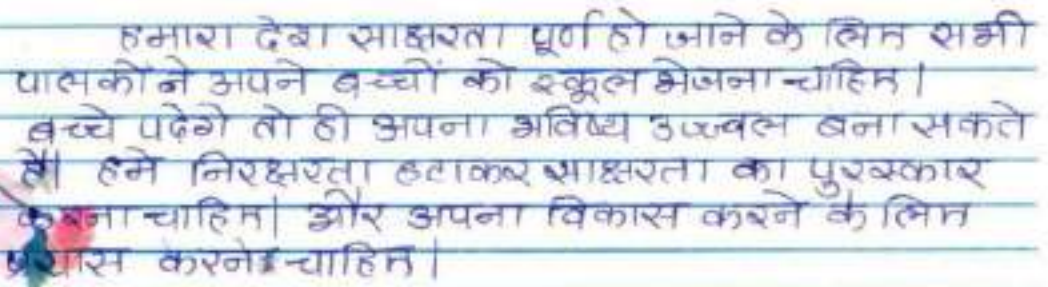 हमारा देश साक्षरता पूर्ण हो जाने के लिए सभी
पालकों ने अपने बच्चों को स्कूल भेजना चाहिए।
बच्चे पढ़ेगे तो ही अपना भविष्य उज्ज्वल बना सकते
है। हमे निरक्षरता हटाकर साक्षरता का पुरस्कार
करना चाहिए। और अपना विकास करने के लिए
प्रयास करने चाहिए।